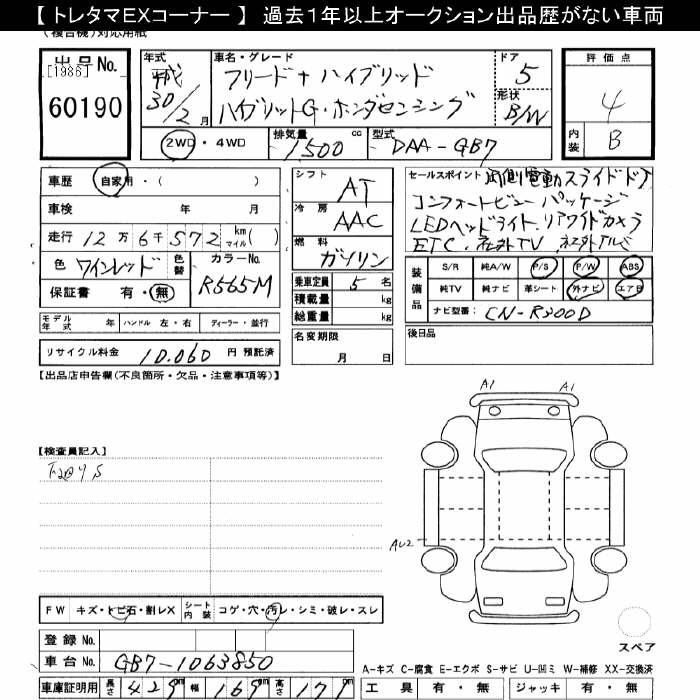 【 トレタマEXコーナー 】 過去1年以上オークション出品歴がない車両
(複合機)対応用紙
出品No.
[1986]
60190
年式
平成
30/2月
車名・グレード
フリード+ ハイブリッド
ハイブリットG・ホンダセンシング
ドア
5
形状
B/W
評価点
4
内装
B
2WD・4WD
排気量
1500 cc
型式
DAA-GB7
車歴 自家用・( )
車検 年 月
走行 12万6千572 km マイル ( )
色 ワインレッド
色替
カラーNo.
R565M
保証書 有・無
シフト
AT
冷房
AAC
燃料
ガソリン
乗車定員 5 名
積載量 kg
総重量 kg
セールスポイント 両側電動スライドドア
コンフォートビューパッケージ
LEDヘッドライト、リアワイドカメラ
ETC、社外TV、社外アルミ
装備品
S/R 純A/W P/S P/W ABS
純TV 純ナビ 革シート 外ナビ エアB
ナビ型番: CN-R300D
モデル年式 年 ハンドル 左・右 ディーラー・並行
リサイクル料金 10.060 円 預託済
名変期限
月 日
後日品
【出品店申告欄(不良箇所・欠品・注意事項等)】
A1 A1
【検査員記入】
下廻りS
AU2
FW キズ・トビ石・割レX
シート内装 コゲ・穴・汚レ・シミ・破レ・スレ
登録No.
車台No. GB7-1063850
スペア
A-キズ C-腐食 E-エクボ S-サビ U-凹ミ W-補修 XX-交換済
車庫証明用 長さ 429 cm 幅 169 cm 高さ 171 cm
工具 有・無 ジャッキ 有・無